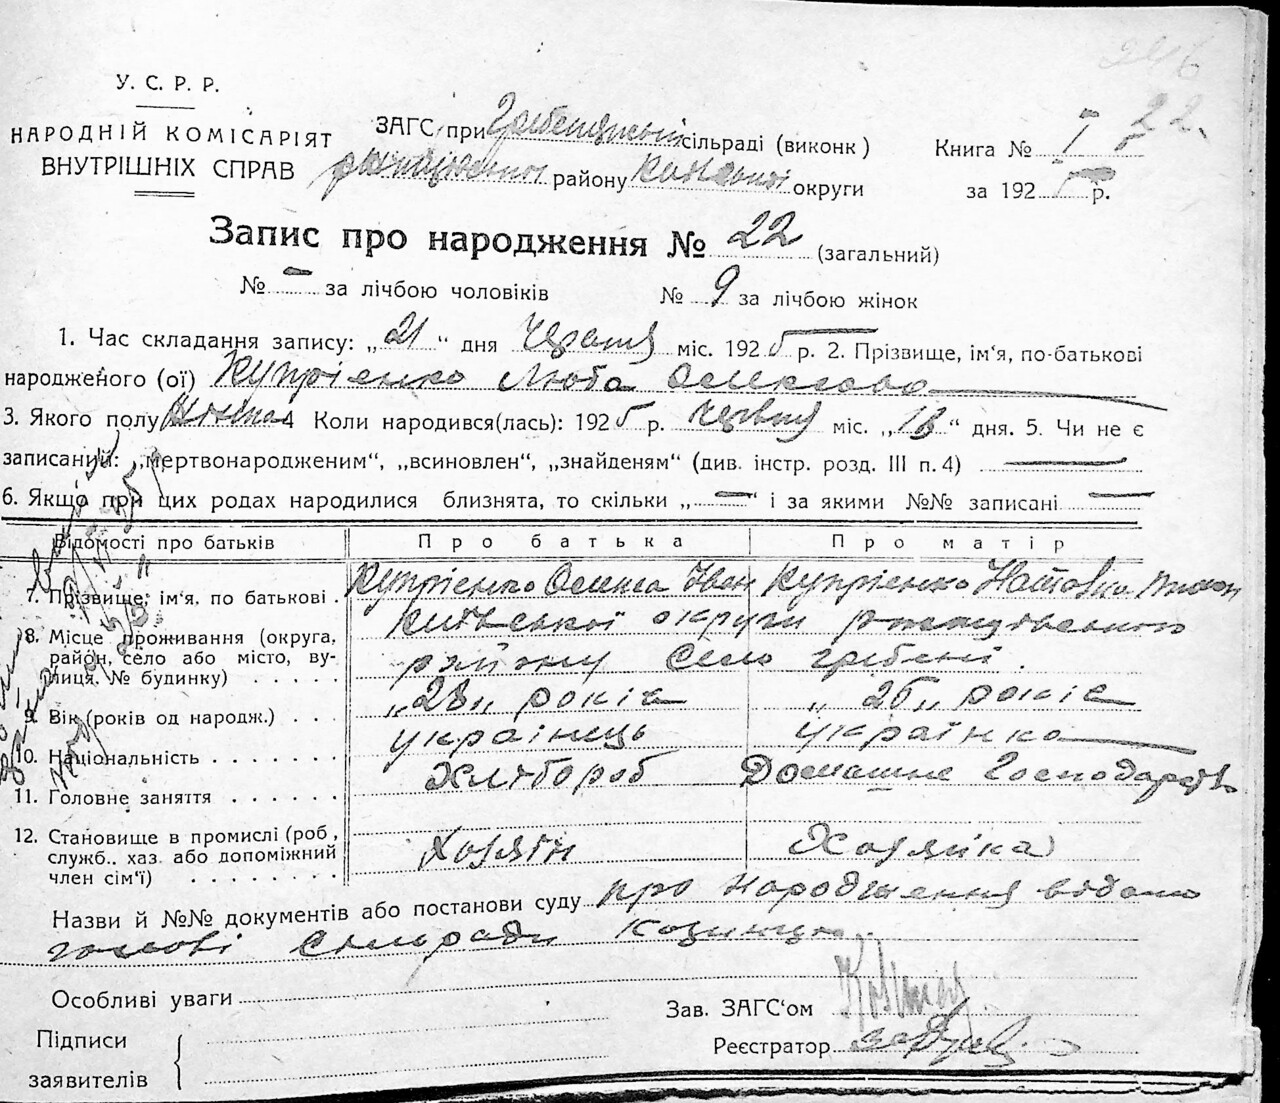 246
22.
У. С. Р. Р.
НАРОДНІЙ КОМІСАРІЯТ
ВНУТРІШНІХ СПРАВ
ЗАГС при сільраді (виконк)
району округи
Книга № I
за 192 р.
Запис про народження № 22 (загальний)
№ — за лічбою чоловіків № 9 за лічбою жінок
1. Час складання запису: „21“ дня Червня міс. 1925 р. 2. Прізвище, ім‘я, по-батькові
народженого (ої) Купрієнко Люба Олексієвна
3. Якого полу 4 Коли народився(лась): 1925 р. червня міс. „18“ дня. 5. Чи не є
записаний: „мертвонародженим“, „всиновлен“, „знайденям“ (див. інстр. розд. III п. 4) —
6. Якщо при цих родах народилися близнята, то скільки „—“ і за якими №№ записані —
Відомості про батьків Про батька Про матір
7. Прізвище, ім‘я, по батькові . Купрієнко Олекса Іван Купрієнко
8. Місце проживання (округа, район, село або місто, вулиця. № будинку) . . . . . Київської округи
району село Гребені.
9. Вік (років од народж.) . . . „28„ років „25„ років
10. Національність . . . . . . . українець українка
11. Головне заняття . . . . . . Хлібороб Домашне Господарств
12. Становище в промислі (роб., служб.. хаз. або допоміжний член сім‘ї) . . . . . . . . Хозяїн Хазяйка
Назви й №№ документів або постанови суду про народження видано
голові Сільради
Особливі уваги
Зав. ЗАГС‘ом
Підписи
заявителів
Реєстратор